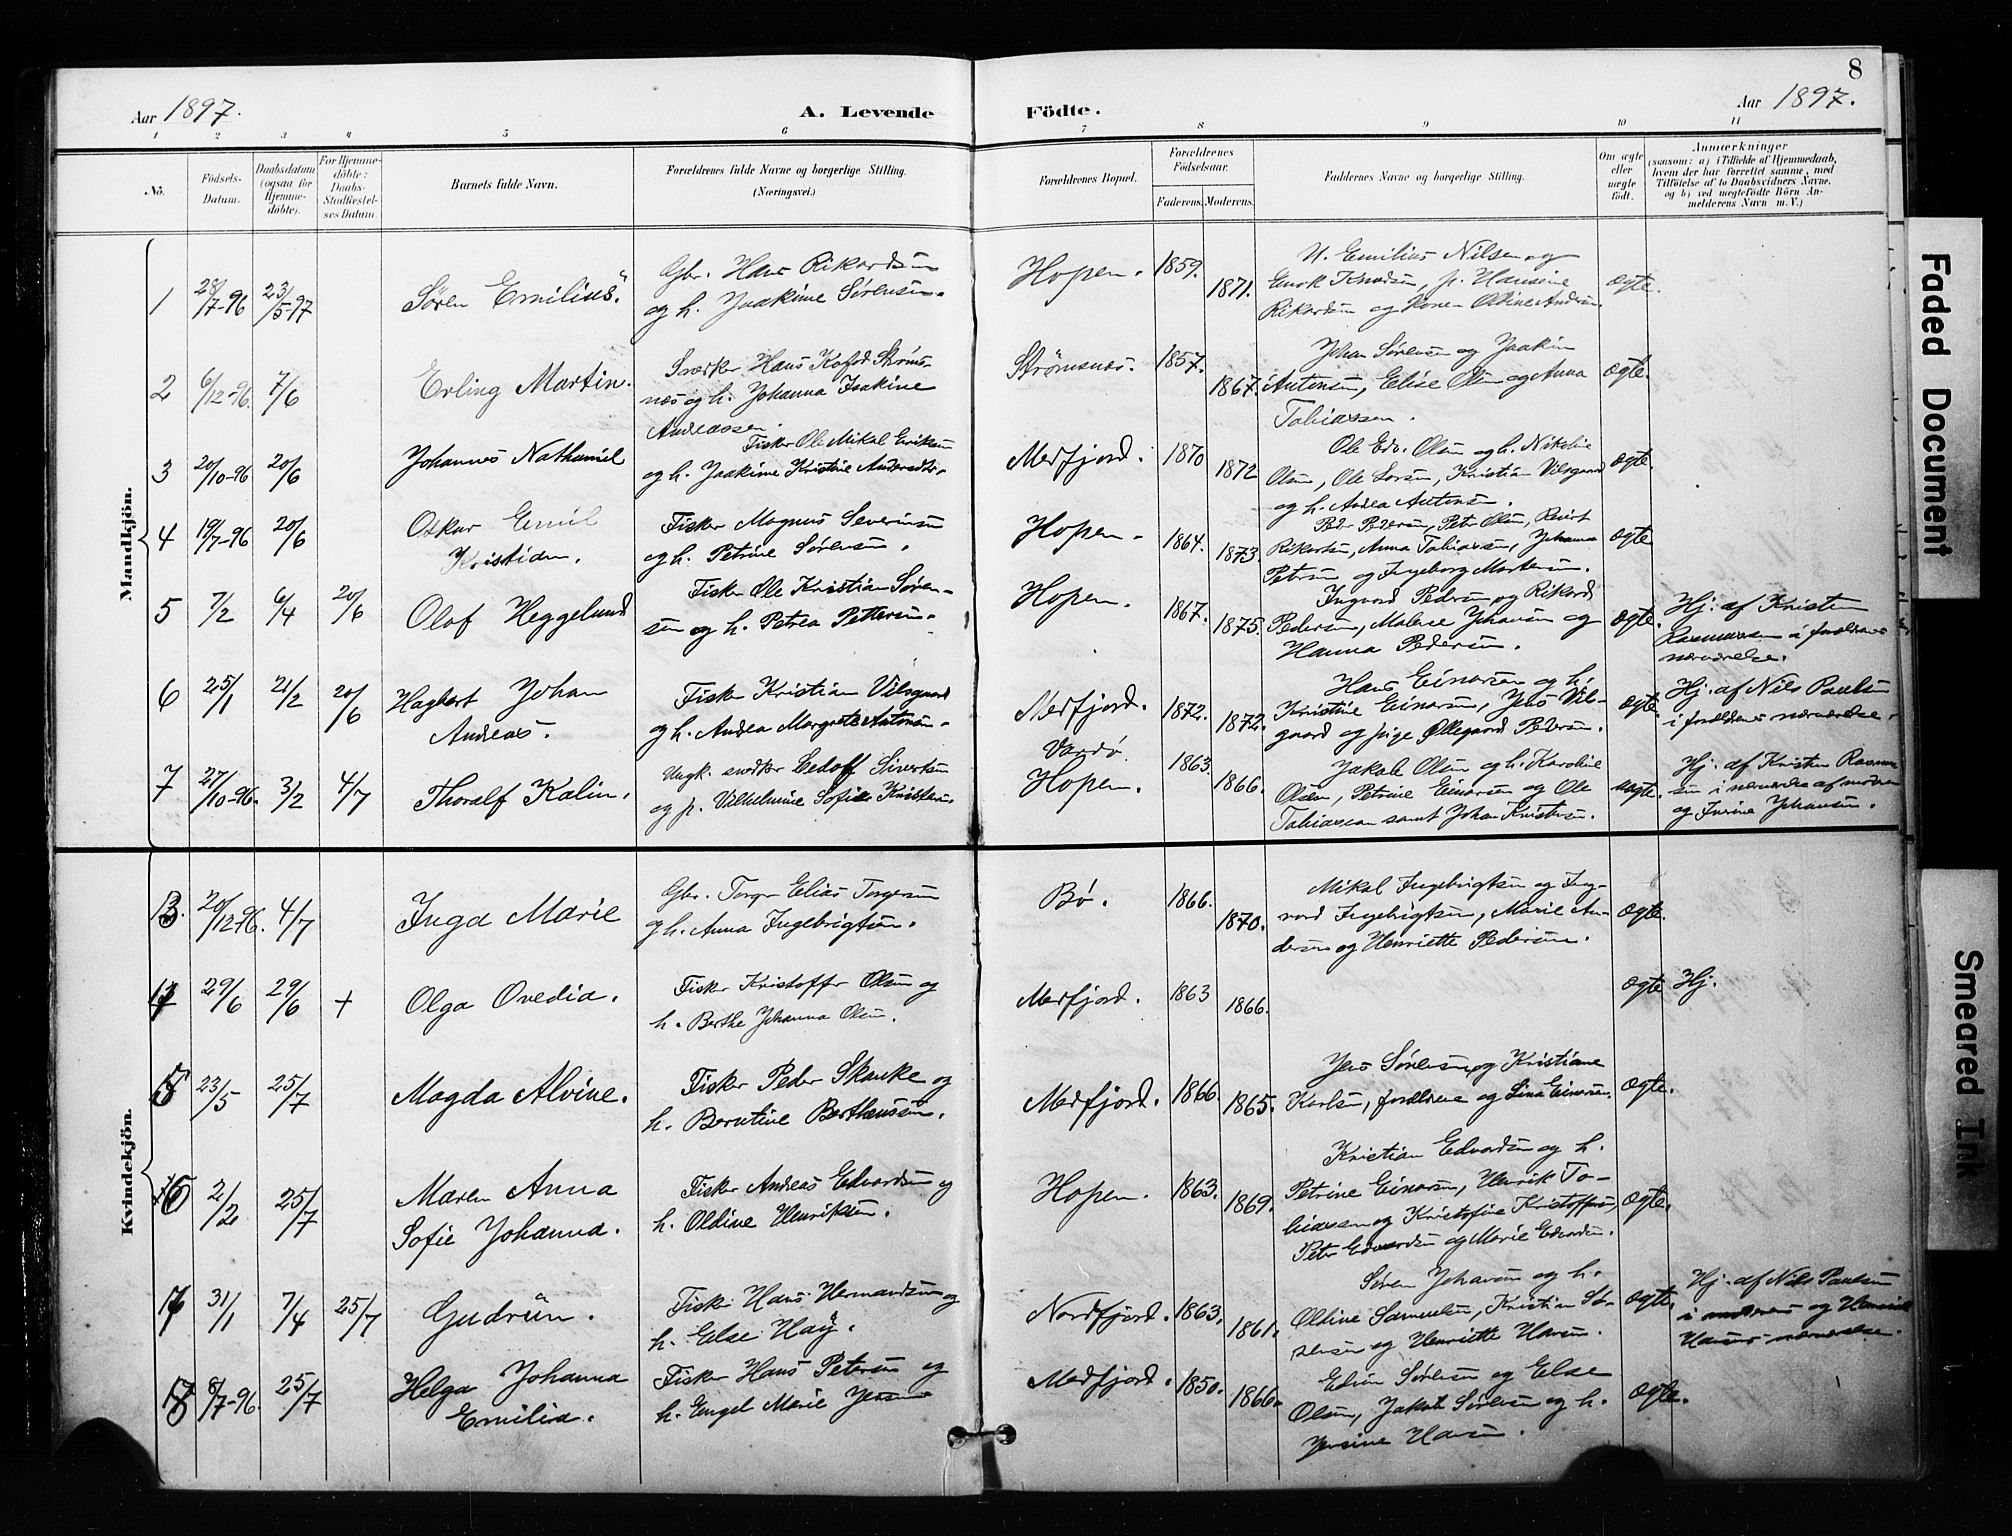 8
Aar 1897.
A. Levende Födte.
Aar 1897.
1 2 3 4 5 6 7 8 9 10 11
No.
Födsels-
Datum.
Daabsdatum
(ogsaa for
Hjemme-
döbte).
For Hjemme-
döbte:
Daabs-
Stadfæstel-
ses Datum.
Barnets fulde Navn.
Forældrenes fulde Navne og borgerlige Stilling.
(Næringsvei.)
Forældrenes Bopæl.
Forældrenes
Födselsaar.
Faderens. Moderens.
Faddernes Navne og borgerlige Stilling.
Om ægte
eller
uægte
födt.
Anmærkninger
(saasom: a) i Tilfælde af Hjemmedaab,
hvem der har forrettet samme, med
Tilföielse af to Daabsvidners Navne,
og b) ved uegtefödte Börn An-
melderens Navn m. V.)
Mandkjön.
1 28/7-96 23/5-97
Søren Emilius.
Gbr. Hans Rikardsen
og h. Joakime Sørensen.
Hopen. 1859. 1871.
U. Emilius Nilsen og
Enok Knudsen, p. Hansine
Rikardsen og Konen Oldine Andersen
ægte.
2 6/12-96. 7/6
Erling Martin.
Snedker Hans Kofod Strøms-
nes og h. Johanna Joakine
Andreassen.
Strømsnes. 1857. 1867.
Johan Sørensen og Joakim
Antonsen, Elise Olsen og Anna
Tobiassen.
ægte.
3 20/10-96 20/6
Johannes Nathaniel
Fisker Ole Mikal Eriksen
og h. Joakime Kristine Andersdtr.
Mefjord. 1870 1872
Ole Edv. Olsen og h. Nikoline
Olsen, Ole Larsen, Kristian Vilsgaard
og h. Andrea Antonsen.
ægte.
4 19/7-96 20/6
Oskar Emil
Kristian.
Fisker Magnus Severinsen
og h. Petrine Sørensen.
Hopen. 1864. 1873.
Peder Pedersen, Peter Olsen,
Rikertsen, Anna Tobiassen, Johanna
Petersen og Ingeborg Mortensen.
ægte
5 7/2 6/4 20/6
Olaf Heggelund
Fisker Ole Kristian Søren-
sen og h. Petrea Pettersen.
Hopen. 1867. 1875.
Ingvard Pedersen og Rikard
Pedersen, Malene Johansen og
Hanna Pedersen.
ægte.
Hj. af Kristen
Rasmussen i forældrenes
nærværelse.
6 25/1 21/2 20/6
Hagbart Johan
Andreas.
Fisker Kristian Vilsgaard
og h. Andrea Margrete Antonsen.
Mefjord. 1872. 1872.
Hans Einarsen og h.
Kristine Einarsen, Jens Vils-
gaard og pige Øllegaard Pedersen.
ægte.
Hj. af Nils Paulsen
i forældrenes nærværelse.
7 27/10-96. 3/2 4/7
Thoralf Kalin.
Ungk. snedker Ledolf Sivertsen
og p. Vilhelmine Sofie Kristensen.
Vardø
Hopen. 1863. 1866.
Jakob Olsen og h. Karoline
Olsen, Petrine Einarsen og Ole
Tobiassen samt Johan Kristensen.
uægte.
Hj. af Kristen Rasmus-
sen i nærværelse af moderen
og Johansen.
Kvindekjön.
20/12-96. 4/7
Inga Marie
Gbr. Torger Elias Torgersen
og h. Anna Ingebrigtsen.
Bø. 1866. 1870.
Mikal Ingebrigtsen og Ing-
vard Ingebrigtsen, Marie An-
dersen og Henriette Pedersen.
ægte.
29/6 29/6 +
Olga Ovedia.
Fisker Kristoffer Olsen og
h. Berthe Johanna Olsen.
Mefjord. 1863 1866.
ægte Hj.
5 23/5 25/7
Magda Alvine.
Fisker Peder Skanke og
h. Berntine Bertheussen.
Mefjord. 1866. 1865.
Jens Sørensen og Kristiane
Karlsen, forældrene og Lina Einarsen.
ægte.
2/2 25/7
Maren Anna
Sofie Johanna.
Fisker Andreas Edvardsen og
h. Oldine Henriksen.
Hopen. 1863. 1869.
Kristian Edvardsen og h.
Petrine Einarsen, Henrik To-
biassen og Kristofine Kristoffersen,
Peter Edvardsen og Marie Edvardsen.
ægte.
31/1 7/4 25/7
Gudrün.
Fisker Hans Hermandsen og
h. Else Høÿ.
Nordfjord. 1863. 1861.
Søren Johansen og h.
Oldine Samuelsen, Kristian
og Henriette Hansen.
ægte.
Hj. af Nils Paulsen
i moderens og
Hansens nærværelse.
8/7-96. 25/7
Helga Johanna
Emilia.
Fisker Hans Petersen og
h. Engel Marie Jensen
Mefjord. 1850. 1866.
Edvin Sørensen og Else
Olsen, Jakob Sørensen og h.
Jensine Hansen.
ægte.
Faded Document
Smeared Ink